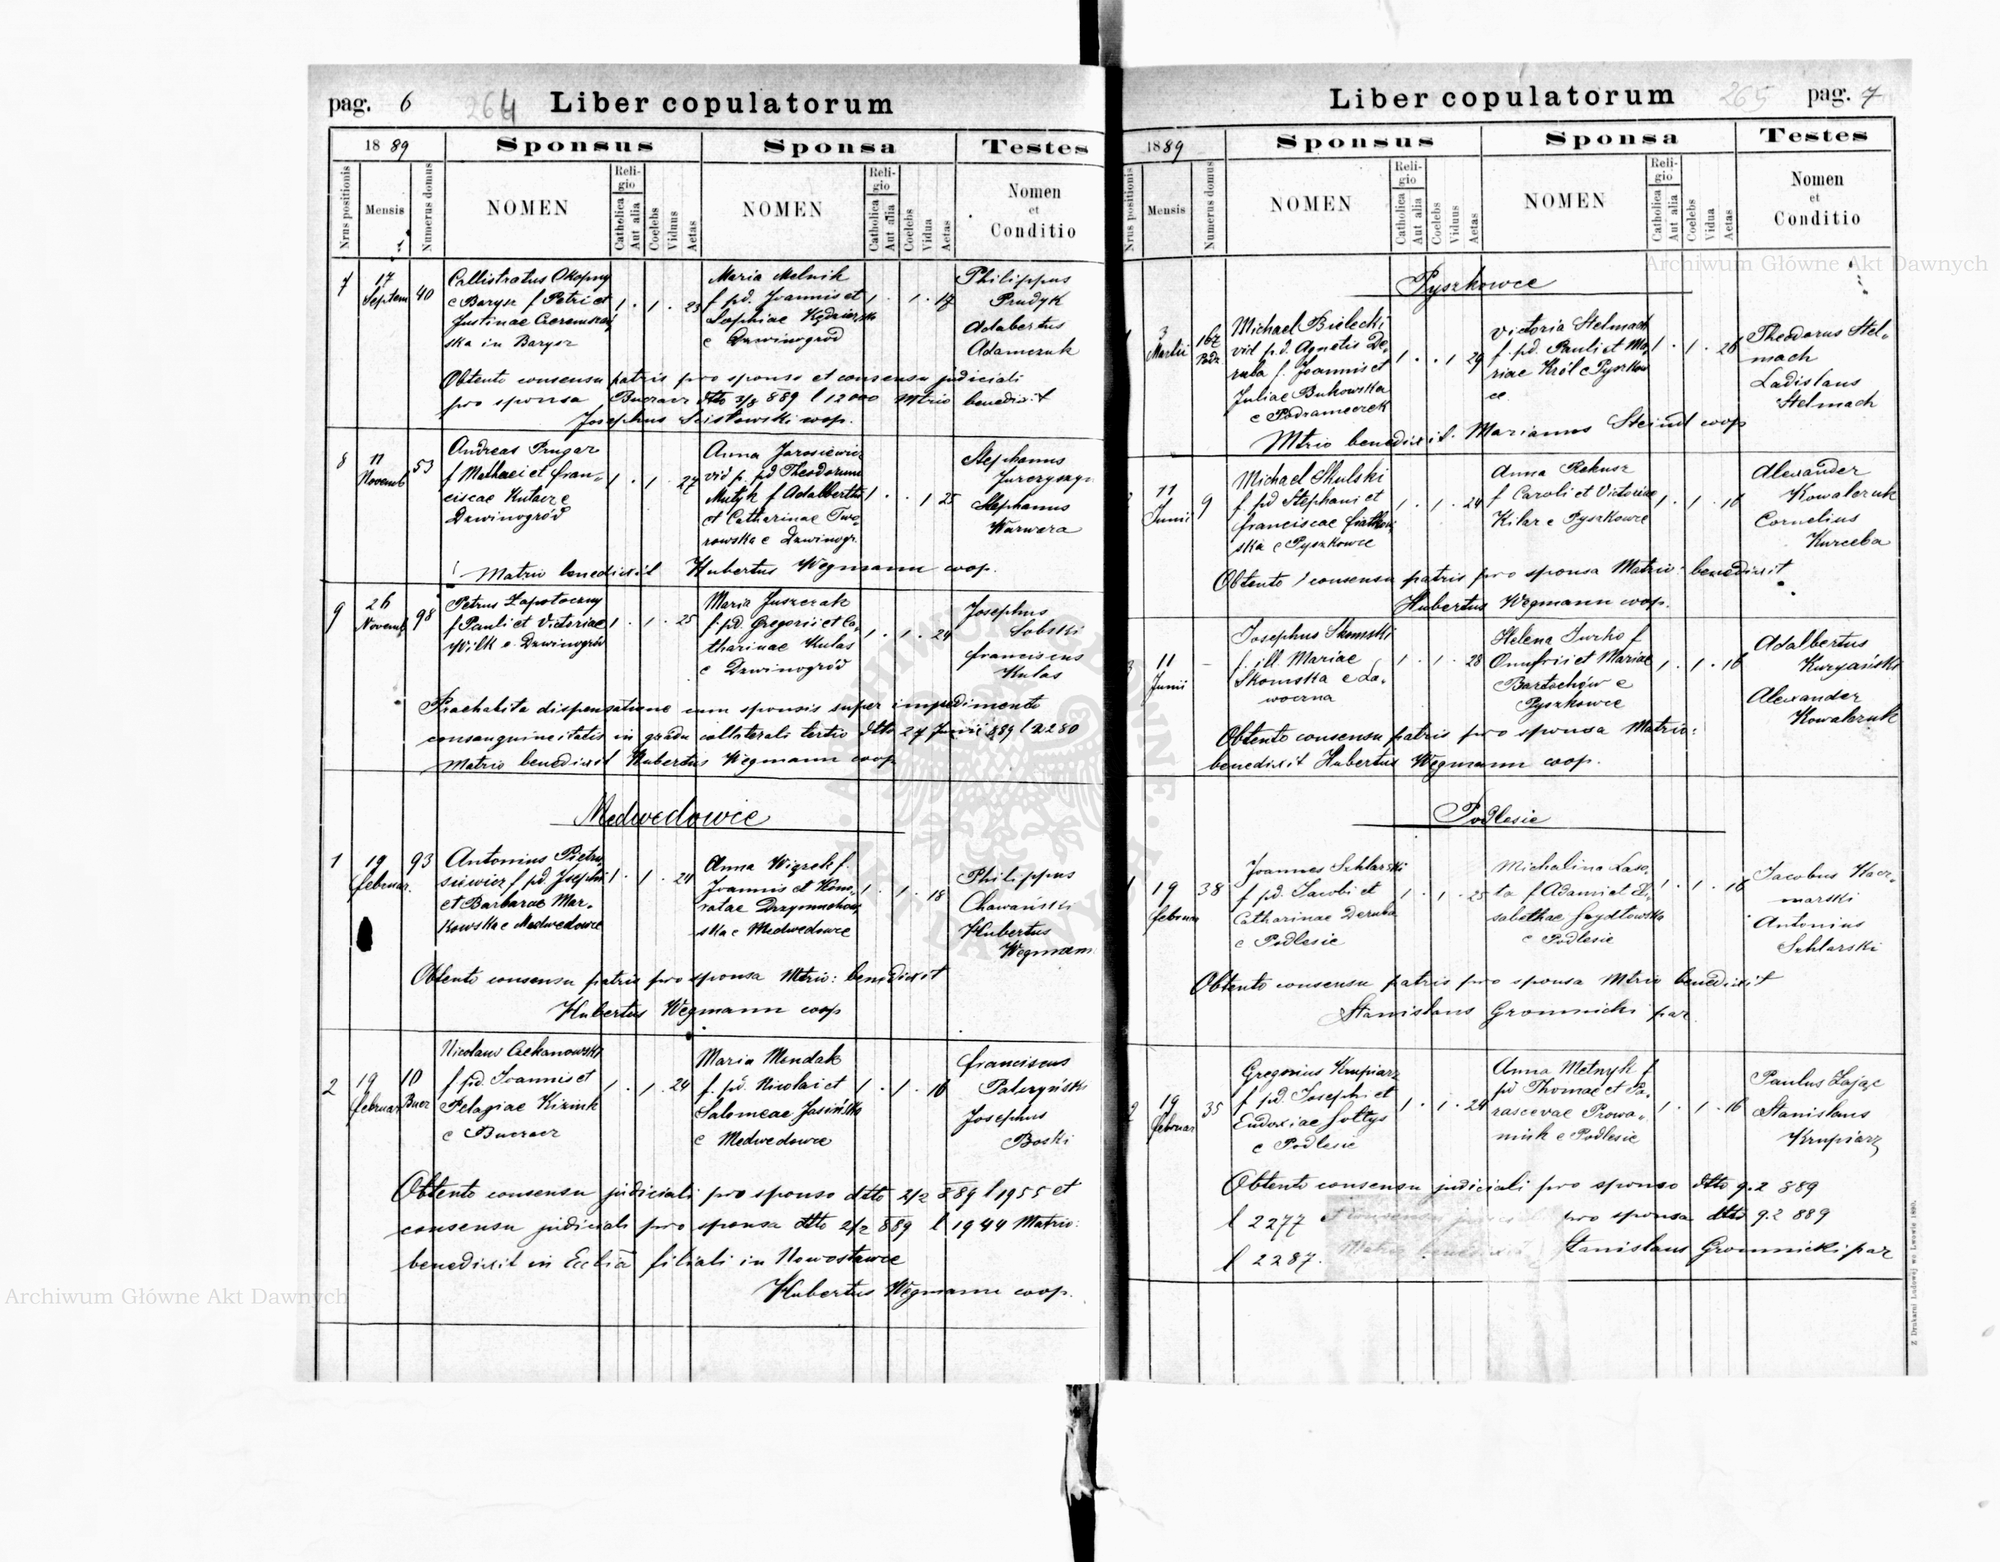 pag. 6 264 Liber copulatorum
18 89 Sponsus Sponsa Testes
Nrus positionis Mensis Numerus domus NOMEN Religio Catholica Aut alia Coelebs Viduus Aetas NOMEN Religio Catholica Aut alia Coelebs Vidua Aetas Nomen et Conditio
7 17 Septem 40
Callistratus Okopny
e Barysz f Petri et
Justinae
ska in Barysz
1 · 1 · 23
Maria Melnik
f pd. Joannis et
Sophiae
e Dzwinogród
1 · 1 · 17
Philippus
Prudyk
Adabertus
Adamczuk
Obtento consensu patris pro sponso et consensu judiciali
pro sponsa Buczacz dtto 3/8 889 l 12000 Mtrio benedixit
Josephus Scisłowski coop.
8 11 Novemb 53
Andreas Prugar
f Mathaei et Fran-
ciscae Kutacz e
Dzwinogród
1 · 1 · 27
Anna Jarosiewicz
vid p. pd Theodorum
Mutyk f Adalberti
et Catharinae Two-
rowska e Dzwinogr.
1 · · 1 25
Stephanus
Stephanus
Warwera
Matrio benedixit Hubertus Wegmann coop.
9 26 Novemb 98
Petrus Zapotoczny
f Pauli et Victoriae
Wilk e Dzwinogród
1 · 1 · 25
Maria Juszczak
f. pd. Gregorii et Ca-
tharinae Kulas
e Dzwinogród
1 · 1 · 24
Josephus
Sobski
Franciscus
Kulas
Praehabita dispensatione cum sponsis super impedimento
consanguineitatis in gradu collaterali tertio dtto 27 Junii 889 l 2280
Matrio benedixit Hubertus Wegmann coop
Medwedowce
1 19 Februar. 93
Antonius Pietru-
siewicz f pd. Josephi
et Barbarae Mar-
kowska e Medwedowce
1 · 1 · 24
Anna Wizrek f.
Joannis et Hono-
ratae
ska e Medwedowce
1 · 1 · 18
Philippus
Chowański
Hubertus
Wegmann
Obtento consensu patris pro sponsa Mtrio: benedixit
Hubertus Wegmann coop
2 19 Februar 10 Bucz
Nicolaus Czekanowski
f pd. Joannis et
Pelagiae Kizink
e Buczacz
1 · 1 · 24
Maria Mendak
f. pd. Nicolai et
Salomeae Jasińska
e Medwedowce
1 · 1 · 16
Franciscus
Patczyński
Josephus
Boski
Obtento consensu judiciali pro sponso dtto 2/2 889 l 1955 et
consensu judiciali pro sponsa dtto 2/2 889 l 1944 Matrio:
benedixit in Ecclia filiali in Nowostawce
Hubertus Wegmann coop.
Liber copulatorum 265 pag. 7
1889 Sponsus Sponsa Testes
Nrus positionis Mensis Numerus domus NOMEN Religio Catholica Aut alia Coelebs Viduus Aetas NOMEN Religio Catholica Aut alia Coelebs Vidua Aetas Nomen et Conditio
Pyszkowce
1 3 Martii 162 Podz
Michael Bielecki
vid p.d. Agnetis De-
ruba f. Joannis et
Juliae Bukowska
e Podzameczek
1 · · 1 29
Victoria Stelmach
f. pd. Pauli et Ma-
riae Król e Pyszkow
ce
1 · 1 · 26
Theodorus Stel-
mach
Ladislaus
Stelmach
Mtrio benedixit. Marianus Steindl coop
2 11 Junii 9
Michael Skulski
f. pd Stephani et
Franciscae
ska e Pyszkowce
1 · 1 · 24
Anna Rekusz
f Caroli et Victoriae
Kilar e Pyszkowce
1 · 1 · 16
Alexander
Kowalczuk
Cornelius
Kurceba
Obtento consensu patris pro sponsa Matrio: benedixit
Hubertus Wegmann coop.
3 11 Junii –
Josephus Skomski
f. ill. Mariae
Skomska e Ła-
woczna
1 · 1 · 28
Helena Jurko f
Onufrii et Mariae
Bartochów e
Pyszkowce
1 · 1 · 16
Adalbertus
Kuryański
Alexander
Kowalczuk
Obtento consensu patris pro sponsa Matrio:
benedixit Hubertus Wegmann coop.
Podlesie
1 19 Februar 38
Joannes Szklarski
f pd. Jacobi et
Catharinae Deruba
e Podlesie
1 · 1 · 25
Michalina Laso-
ta f Adami et Eli-
sabethae
e Podlesie
1 · 1 · 16
Jacobus Kacz-
marski
Antonius
Szklarski
Obtento consensu patris pro sponsa Mtrio benedixit
Stanislaus Gromnicki par.
2 19 Februar 35
Gregorius Krupiarz
f pd. Josephi et
Eudoxiae Sołtys
e Podlesie
1 · 1 · 24
Anna Metnyk f
pd Thomae et Pa-
rascevae Prowa-
nink e Podlesie
1 · 1 · 16
Paulus Zając
Stanislaus
Krupiarz
Obtento consensu judiciali pro sponso dtto 9.2 889
l 2277 et consensu judiciali pro sponsa dtto 9.2 889
l 2287. Matrio benedixit Stanislaus Gromnicki par
Z Drukarni Ludowej we Lwowie 1880.
Archiwum Główne Akt Dawnych
Archiwum Główne Akt Dawnych